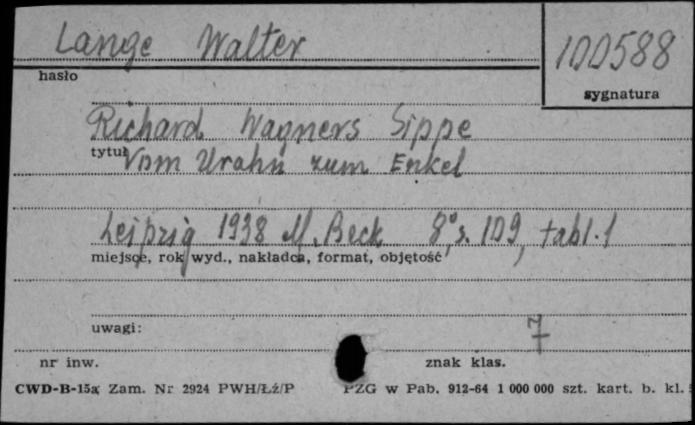 Lange Walter
100588
hasło
sygnatura
Richard Wagners Sippe
tytuł
Vom Urahn zum Enkel
Leipzig 1938 M. Beck 8°, s. 109, tabl. 1
miejsce, rok wyd., nakładca, format, objętość
uwagi:
7
nr inw.
znak klas.
CWD-B-15a, Zam. Nr 2924 PWH/Łź/P PZG w Pab. 912-64 1 000 000 szt. kart. b. kl.